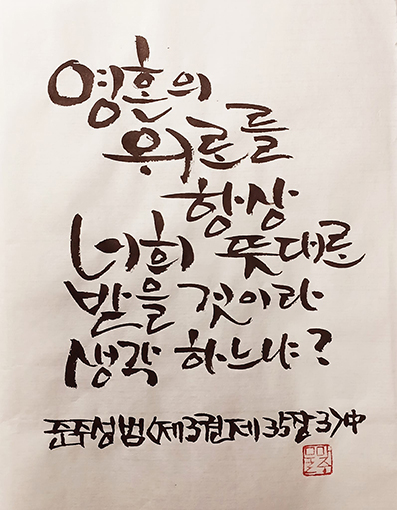 영혼의
위로를
항상
너희 뜻대로
받을 것이라
생각 하느냐?
준주성범<제3권제35장3>中